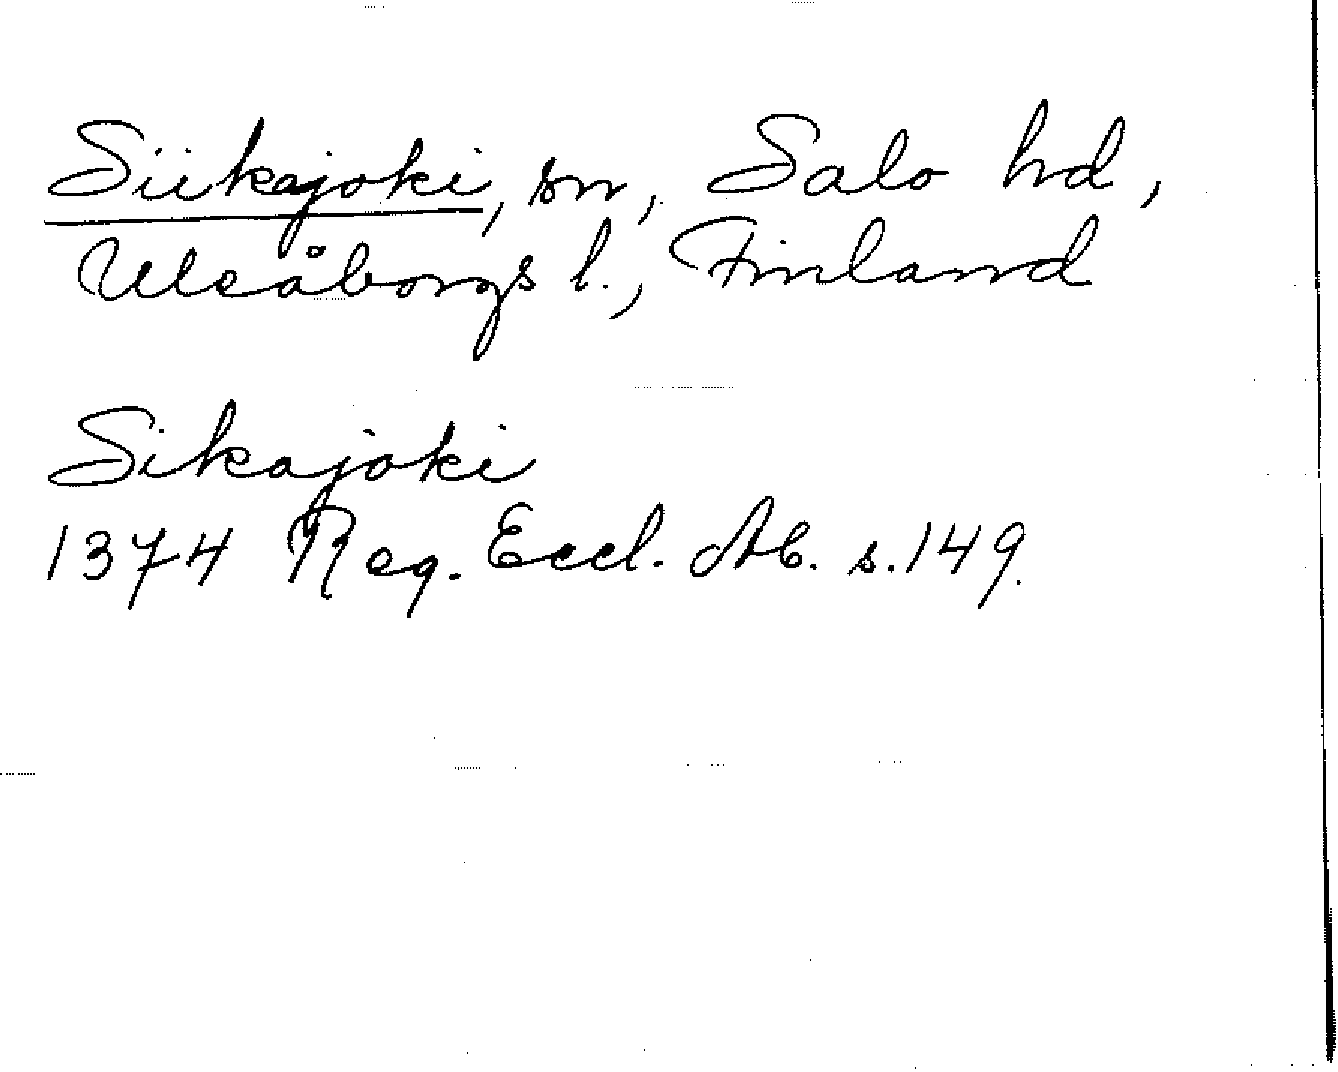 Siikajoki, sn, Salo hd,
Uleåborgs l., Finland
Sikajoki
1374 Reg. Eccl. Ab. s. 149.